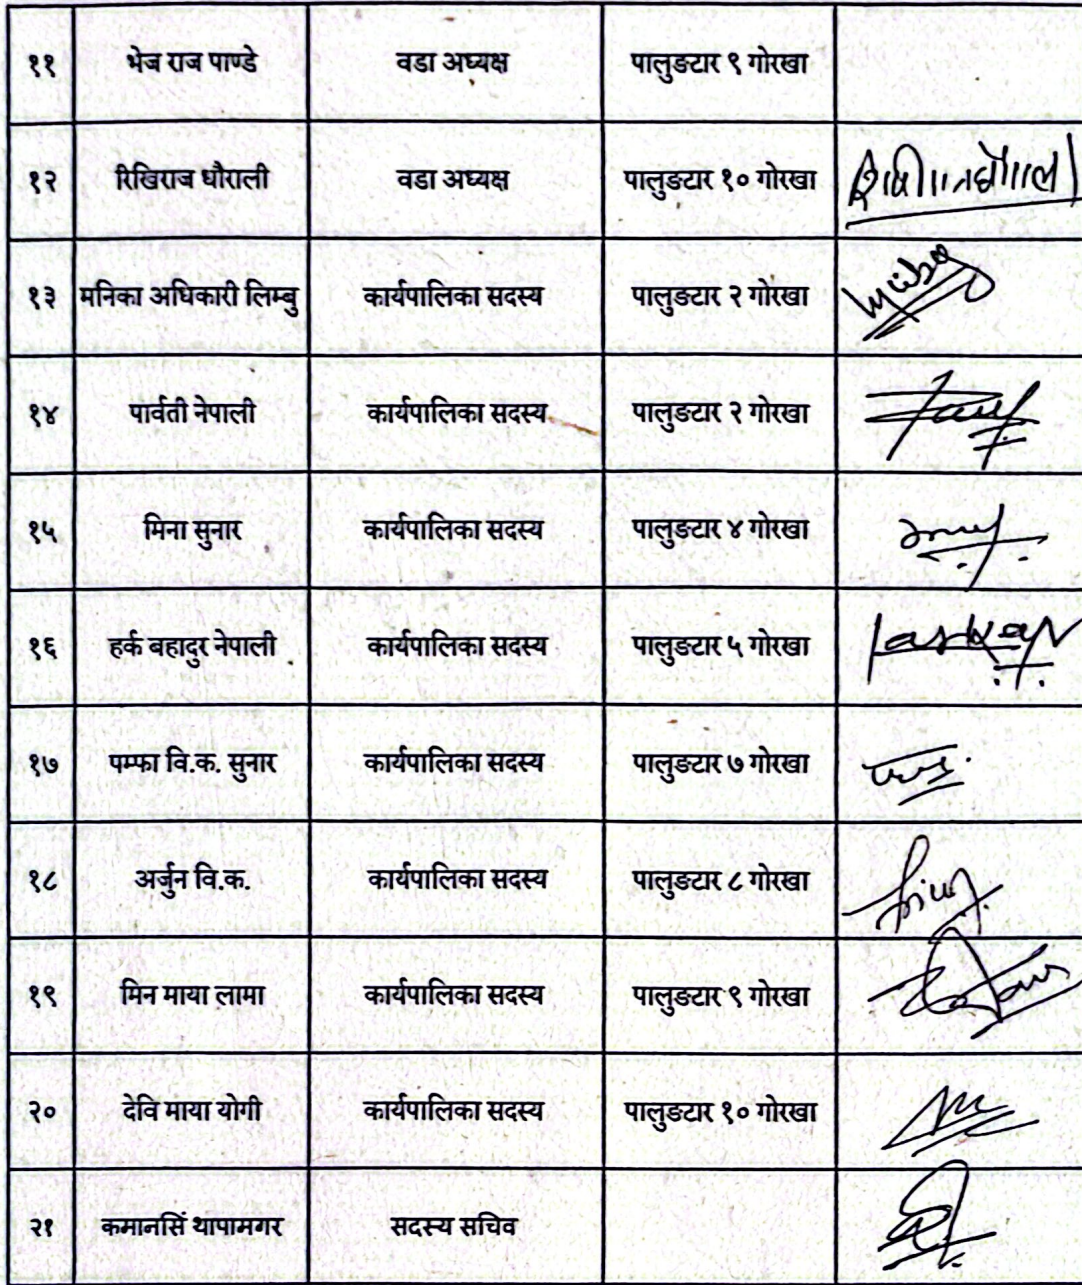 ११ भेज राज पाण्डे वडा अध्यक्ष पालुङटार ९ गोरखा
१२ रिखिराज घौराली वडा अध्यक्ष पालुङटार १० गोरखा
१३ मनिका अधिकारी लिम्बु कार्यपालिका सदस्य पालुङटार २ गोरखा
१४ पार्वती नेपाली कार्यपालिका सदस्य पालुङटार २ गोरखा
१५ मिना सुनार कार्यपालिका सदस्य पालुङटार ४ गोरखा
१६ हर्क बहादुर नेपाली कार्यपालिका सदस्य पालुङटार ५ गोरखा
१७ पम्फा वि.क. सुनार कार्यपालिका सदस्य पालुङटार ७ गोरखा
१८ अर्जुन वि.क. कार्यपालिका सदस्य पालुङटार ८ गोरखा
१९ मिन माया लामा कार्यपालिका सदस्य पालुङटार ९ गोरखा
२० देवि माया योगी कार्यपालिका सदस्य पालुङटार १० गोरखा
२१ कमानसिं थापामगर सदस्य सचिव